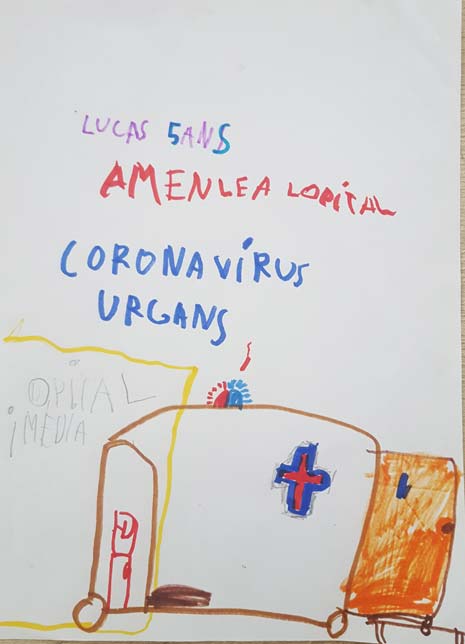 LUCAS 5ANS
AMENLEA LOPITAL
CORONAVIRUS
URGANS
OPITAL
iMEDIA